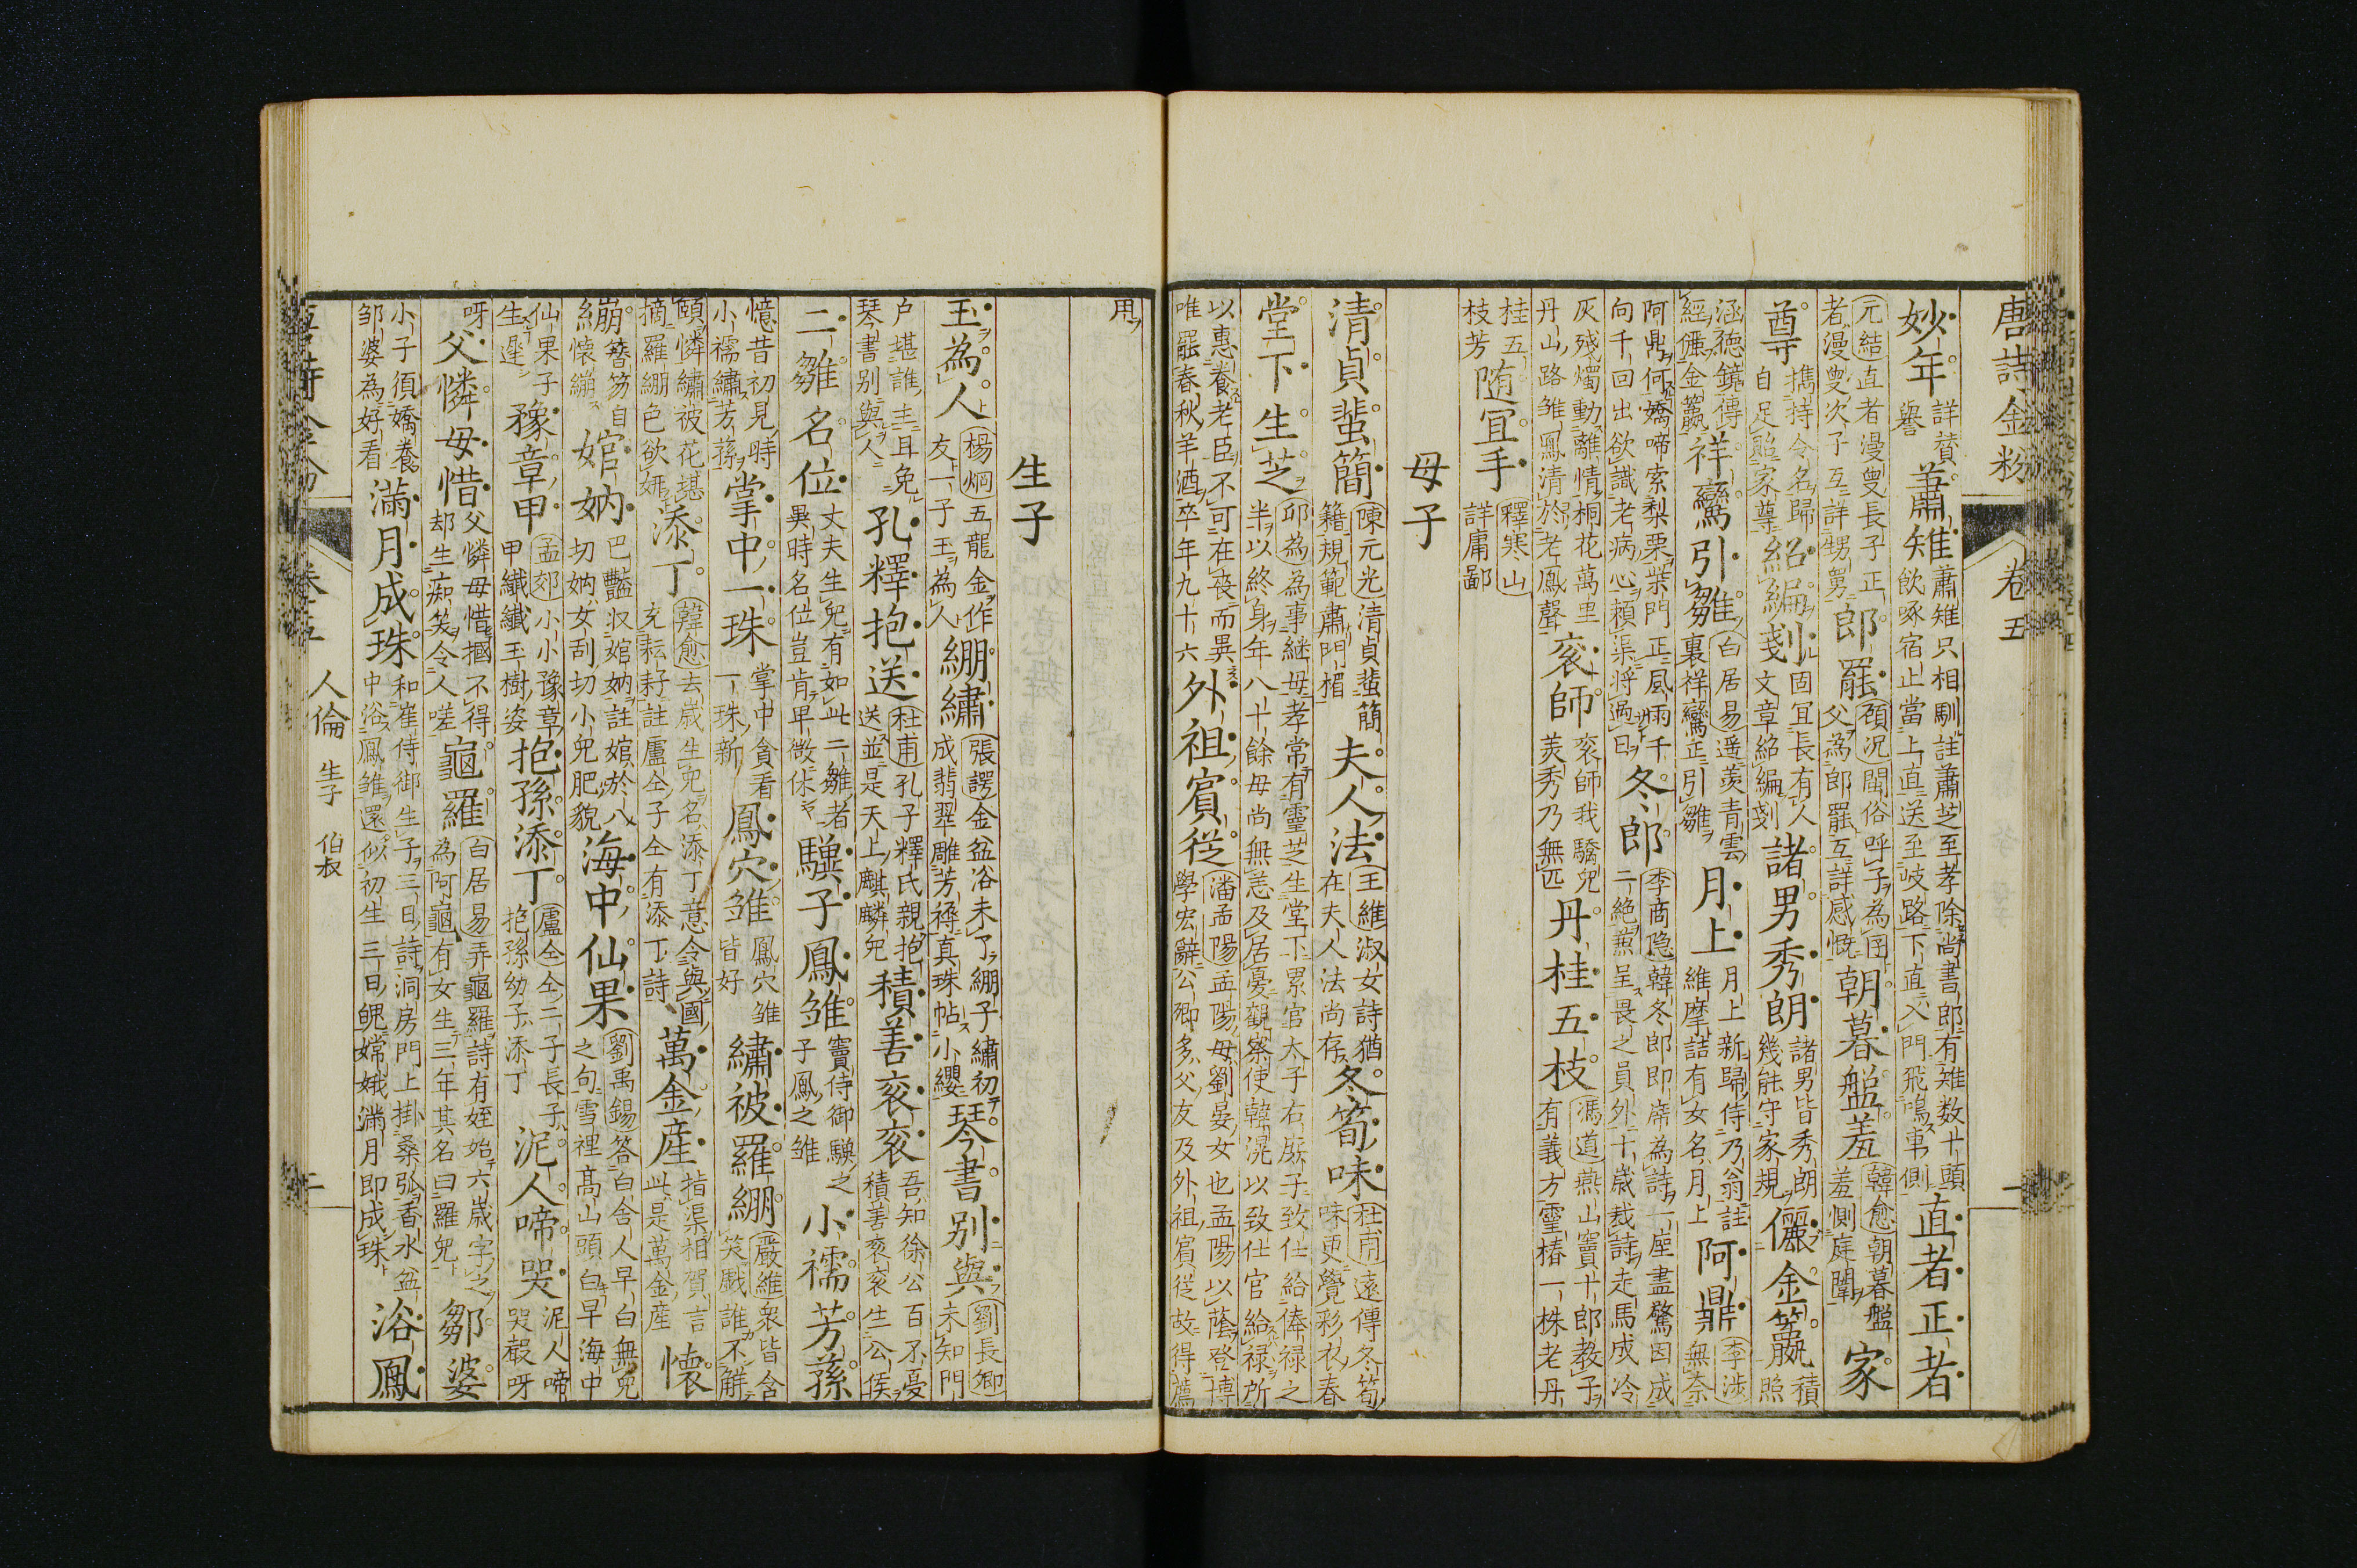 唐詩金粉 卷五
妙年 詳賛譽 蕭雉 蕭雉只相馴註蕭芝至孝除尚書郎有雉数十頭飲啄宿止當上直送至岐路下直入門飛鳴車側 直者正者
元結直者漫叟長子正者漫叟次子互詳甥舅 郎罷 顧況閩俗呼子為囝父為郎罷互詳感慨 朝暮盤羞 韓愈朝暮盤羞側庭闈 家
尊 携持令名歸自足貽家尊 紹編剗 固宜長有人文章紹編剗 諸男秀朗 諸男皆秀朗幾能守家規 儷金籯 積照
涵德鏡傳經儷金籯 祥鸞引雛 白居易遥羨青雲裏祥鸞正引雛 月上 月上新歸侍乃翁註維摩詰有女名月上 阿鼎 李涉無奈
阿鼎何嬌啼索梨栗柴門正風雨千向千回出欲識老病心頼渠将過日 冬郎 李商隐韓冬郎即席為詩一座盡驚因成二絶兼呈畏之員外十歲裁詩走馬成冷
灰殘燭動離情桐花萬里丹山路雛鳳清於老鳳聲 衮師 衮師我驕兒美秀乃無匹 丹桂五枝 馮道燕山竇十郎教子有義方靈椿一株老丹
桂五枝芳 随宜手 釋寒山詳庸鄙
母子
清貞蜚簡 陳元光清貞蜚簡籍規範肅門楣 夫人法 王維淑女詩猶在夫人法尚存 冬筍味 杜甫遠傳冬筍味更覺彩衣春
堂下生芝 邱為為事継母孝常有靈芝生堂下累官太子右庶子致仕給俸禄之半以終身年八十餘母尚無恙及居憂觀察使韓滉以致仕官給禄所
以惠養老臣不可在喪而異唯罷春秋羊酒卒年九十六 外祖賓從 潘孟陽孟陽母劉晏女也孟陽以蔭登博學宏辭公卿多父友及外祖賓從故得薦
用
生子
玉為人 楊烱五龍金作友一子玉為人 綳繡 張諤金盆浴未了綳子繡初成翡翠雕芳褥真珠帖小纓 琴書别與 劉長卿未知門
户堪誰主且免琴書别與人 孔釋抱送 杜甫孔子釋氏親抱送並是天上麒麟兒 積善衮衮 吾知徐公百不憂積善衮衮生公侯
二雛名位 丈夫生兒有如此二雛者異時名位豈肯卑微休 驥子鳳雛 竇侍御驥之子鳳之雛 小襦芳蓀
憶昔初見時小襦繡芳蓀 掌中一珠 掌中貪看一珠新 鳳穴雛 鳳穴雛皆好 繡被羅綳 嚴維衆皆含笑戲誰不解
頤憐繡被花堪摘羅綳色欲妍 添丁 韓愈去歲生兒名添丁意令與國充耘耔註盧仝子仝有添丁詩 萬金産 指渠相賀言此是萬金産 懷
綳 簪笏自懷綳 婠妠 巴豔収婠妠註婠於八切妠女刮切小兒肥貌 海中仙果 劉禹錫答白舍人早白無兒之句雪裡髙山頭白早海中
仙果子生遲 豫章甲 孟郊小小豫章甲纖纖玉樹姿 抱孫添丁 盧仝仝二子長子抱孫幼子添丁 泥人啼哭 泥人啼哭聲呀
呀 父憐母惜 父憐母惜摑不得却生痴笑令人嗟 龜羅 白居易弄龜羅詩有姪始六歳字之為阿龜有女生三年其名曰羅兒 鄒婆
小子須嬌養鄒婆為好看 滿月成珠 和崔侍御生子三日詩洞房門上掛桑弧香水盆中浴鳳雛還似初生三日魄嫦娥滿月即成珠 浴鳳
唐詩金粉 卷五 人倫 生子 伯叔 二